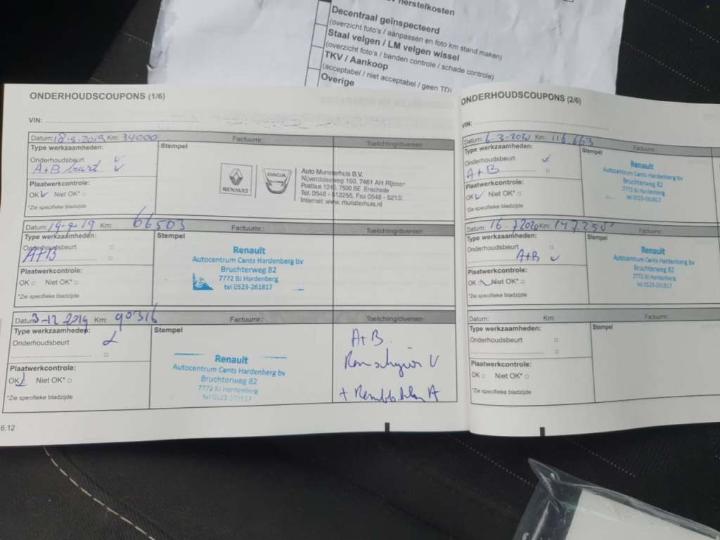 herstelkosten
Decentraal geïnspecteerd
(overzicht foto's / aanpassen en foto km stand maken)
Staal velgen / LM velgen wissel
(overzicht foto's / banden controle / schade controle)
TKV / Aankoop
(acceptabel / niet acceptabel / geen TD)
Overige
ONDERHOUDSCOUPONS (1/6)
VIN:
Datum: 18-3-2019 Km: 34000 Factuurnr.: Toelichting/diversen
Type werkzaamheden: Stempel
Onderhoudsbeurt
A+B beurt
Plaatwerkcontrole:
OK Niet OK*
*Zie specifieke bladzijde
RENAULT DACIA
Auto Munsterhuis B.V.
Internet: www.munsterhuis.nl
Km: 66503 Factuurnr.: Toelichting/diversen
Type werkzaamheden: Stempel
Onderhoudsbeurt
A+B
Plaatwerkcontrole:
OK Niet OK*
*Zie specifieke bladzijde
Renault
Autocentrum Cents Hardenberg bv
Bruchterweg 82
7772 BJ Hardenberg
tel 0523-261817
Datum: 3-12 2019 Km: 90316 Factuurnr.: Toelichting/diversen
Type werkzaamheden: Stempel
Onderhoudsbeurt
Plaatwerkcontrole:
OK Niet OK*
*Zie specifieke bladzijde
Renault
Autocentrum Cents Hardenberg bv
Bruchterweg 82
7772 BJ Hardenberg
A+B
Remschijven V
+ Remblokken A
6.12
ONDERHOUDSCOUPONS (2/6)
VIN:
Datum: 6-3-2020 Km: 116653 Factuurnr.:
Type werkzaamheden: Stempel
Onderhoudsbeurt
A+B
Plaatwerkcontrole:
OK Niet OK*
*Zie specifieke bladzijde
Renault
Autocentrum Cents Hardenberg bv
Bruchterweg 82
7772 BJ Hardenberg
tel 0523-261817
Datum: 16-7 2020 Km: Factuurnr.:
Type werkzaamheden: Stempel
Onderhoudsbeurt
A+B
Plaatwerkcontrole:
OK Niet OK*
*Zie specifieke bladzijde
Renault
Autocentrum Cents Hardenberg bv
Bruchterweg 82
7772 BJ Hardenberg
tel 0523-261817
Datum: Km: Factuurnr.:
Type werkzaamheden: Stempel
Onderhoudsbeurt
Plaatwerkcontrole:
OK Niet OK*
*Zie specifieke bladzijde